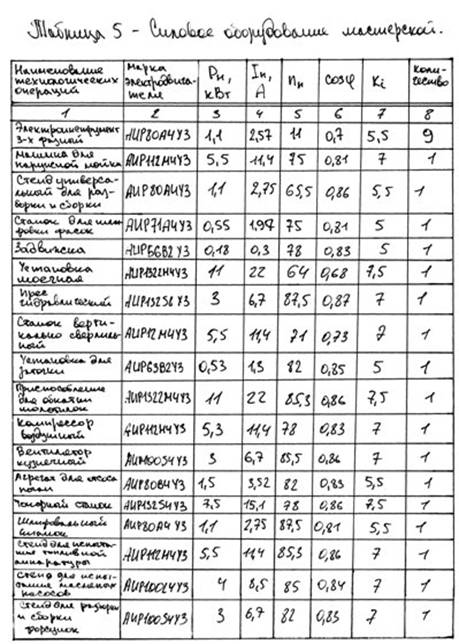 Таблица 5 - Силовое оборудование мастерской.
Наименование технологических операций | Марка электродвигателя | Pн, кВт | Iн, А | nн | cosφ | Ki | Количество
1 | 2 | 3 | 4 | 5 | 6 | 7 | 8
Электроинструмент 3-х фазной | АИР80А4У3 | 1,1 | 2,57 | 11 | 0,7 | 5,5 | 9
Машина для наружной мойки | АИР112М4У3 | 5,5 | 11,4 | 75 | 0,81 | 7 | 1
Стенд универсальный для разборки и сборки | АИР80А4У3 | 1,1 | 2,75 | 65,5 | 0,86 | 5,5 | 1
Станок для шлифовки фасок | АИР71А4У3 | 0,55 | 1,97 | 75 | 0,81 | 5 | 1
Задвижка | АИР56В2У3 | 0,18 | 0,3 | 78 | 0,83 | 5 | 1
Установка моечная | 11 | 22 | 64 | 0,68 | 7,5 | 1
Прес гидравлический | АИР132S6У3 | 3 | 6,7 | 87,5 | 0,87 | 7 | 1
Станок вертикально сверлильный | 5,5 | 11,4 | 71 | 0,73 | 7 | 1
Установка для | АИР63В2У3 | 0,53 | 1,3 | 82 | 0,85 | 5 | 1
Приспособление для обкатки | 11 | 22 | 85,3 | 0,86 | 7,5 | 1
Компрессор воздушной | АИР112М4У3 | 5,3 | 11,4 | 78 | 0,83 | 7 | 1
Вентилятор кузнечной | 3 | 6,7 | 85,5 | 0,86 | 7 | 1
Агрегат для | АИР80В4У3 | 1,5 | 3,52 | 82 | 0,83 | 5,5 | 1
Токарной станок | АИР132S4У3 | 7,5 | 15,1 | 78 | 0,86 | 7,5 | 1
Шлифовальный станок | АИР80А4У3 | 1,1 | 2,75 | 87,5 | 0,81 | 5,5 | 1
Стенд для испытания топливной аппаратуры | АИР112М4У3 | 5,5 | 11,4 | 85,3 | 0,86 | 7 | 1
Стенд для испытания масленых насосов | АИР100L4У3 | 4 | 8,5 | 85 | 0,84 | 7 | 1
Стенд для разборки и сборки форсунок | АИР100S4У3 | 3 | 6,7 | 82 | 0,83 | 7 | 1